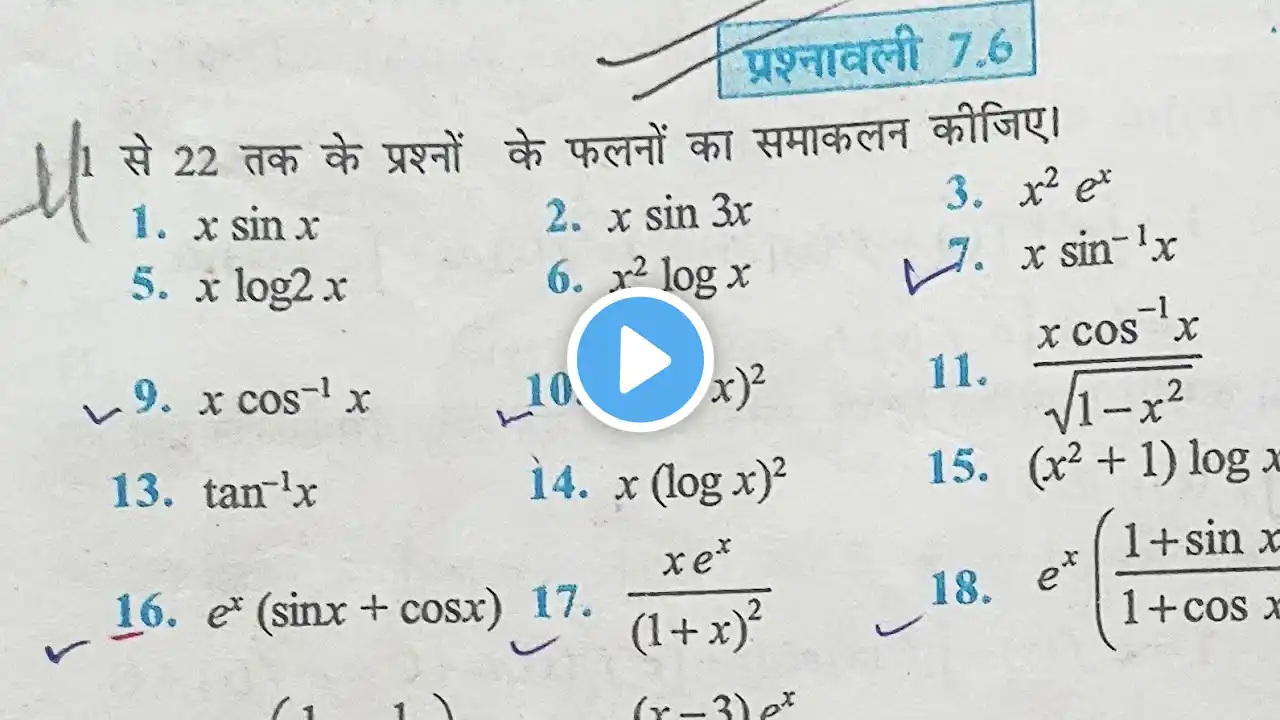 प्रश्नावली 7.6
1 से 22 तक के प्रश्नों के फलनों का समाकलन कीजिए।
1. x sin x 2. x sin 3x 3. x² eˣ
5. x log2 x 6. x² log x 7. x sin⁻¹x
9. x cos⁻¹ x 10. x)² 11. x cos⁻¹x / √1−x²
13. tan⁻¹x 14. x (log x)² 15. (x² + 1) log x
16. eˣ (sinx + cosx) 17. x eˣ / (1+x)² 18. eˣ (1+sin x / 1+cos x
(x−3) eˣ